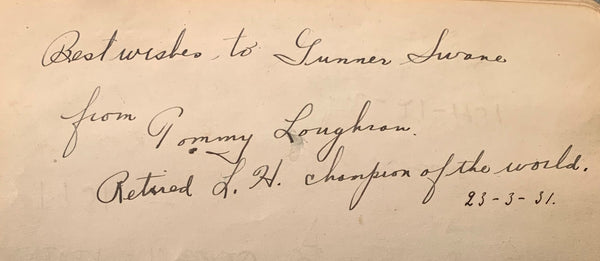 Best wishes to Gunner Swane
from Tommy Loughran.
Retired L. H. champion of the world.
23-3-31.